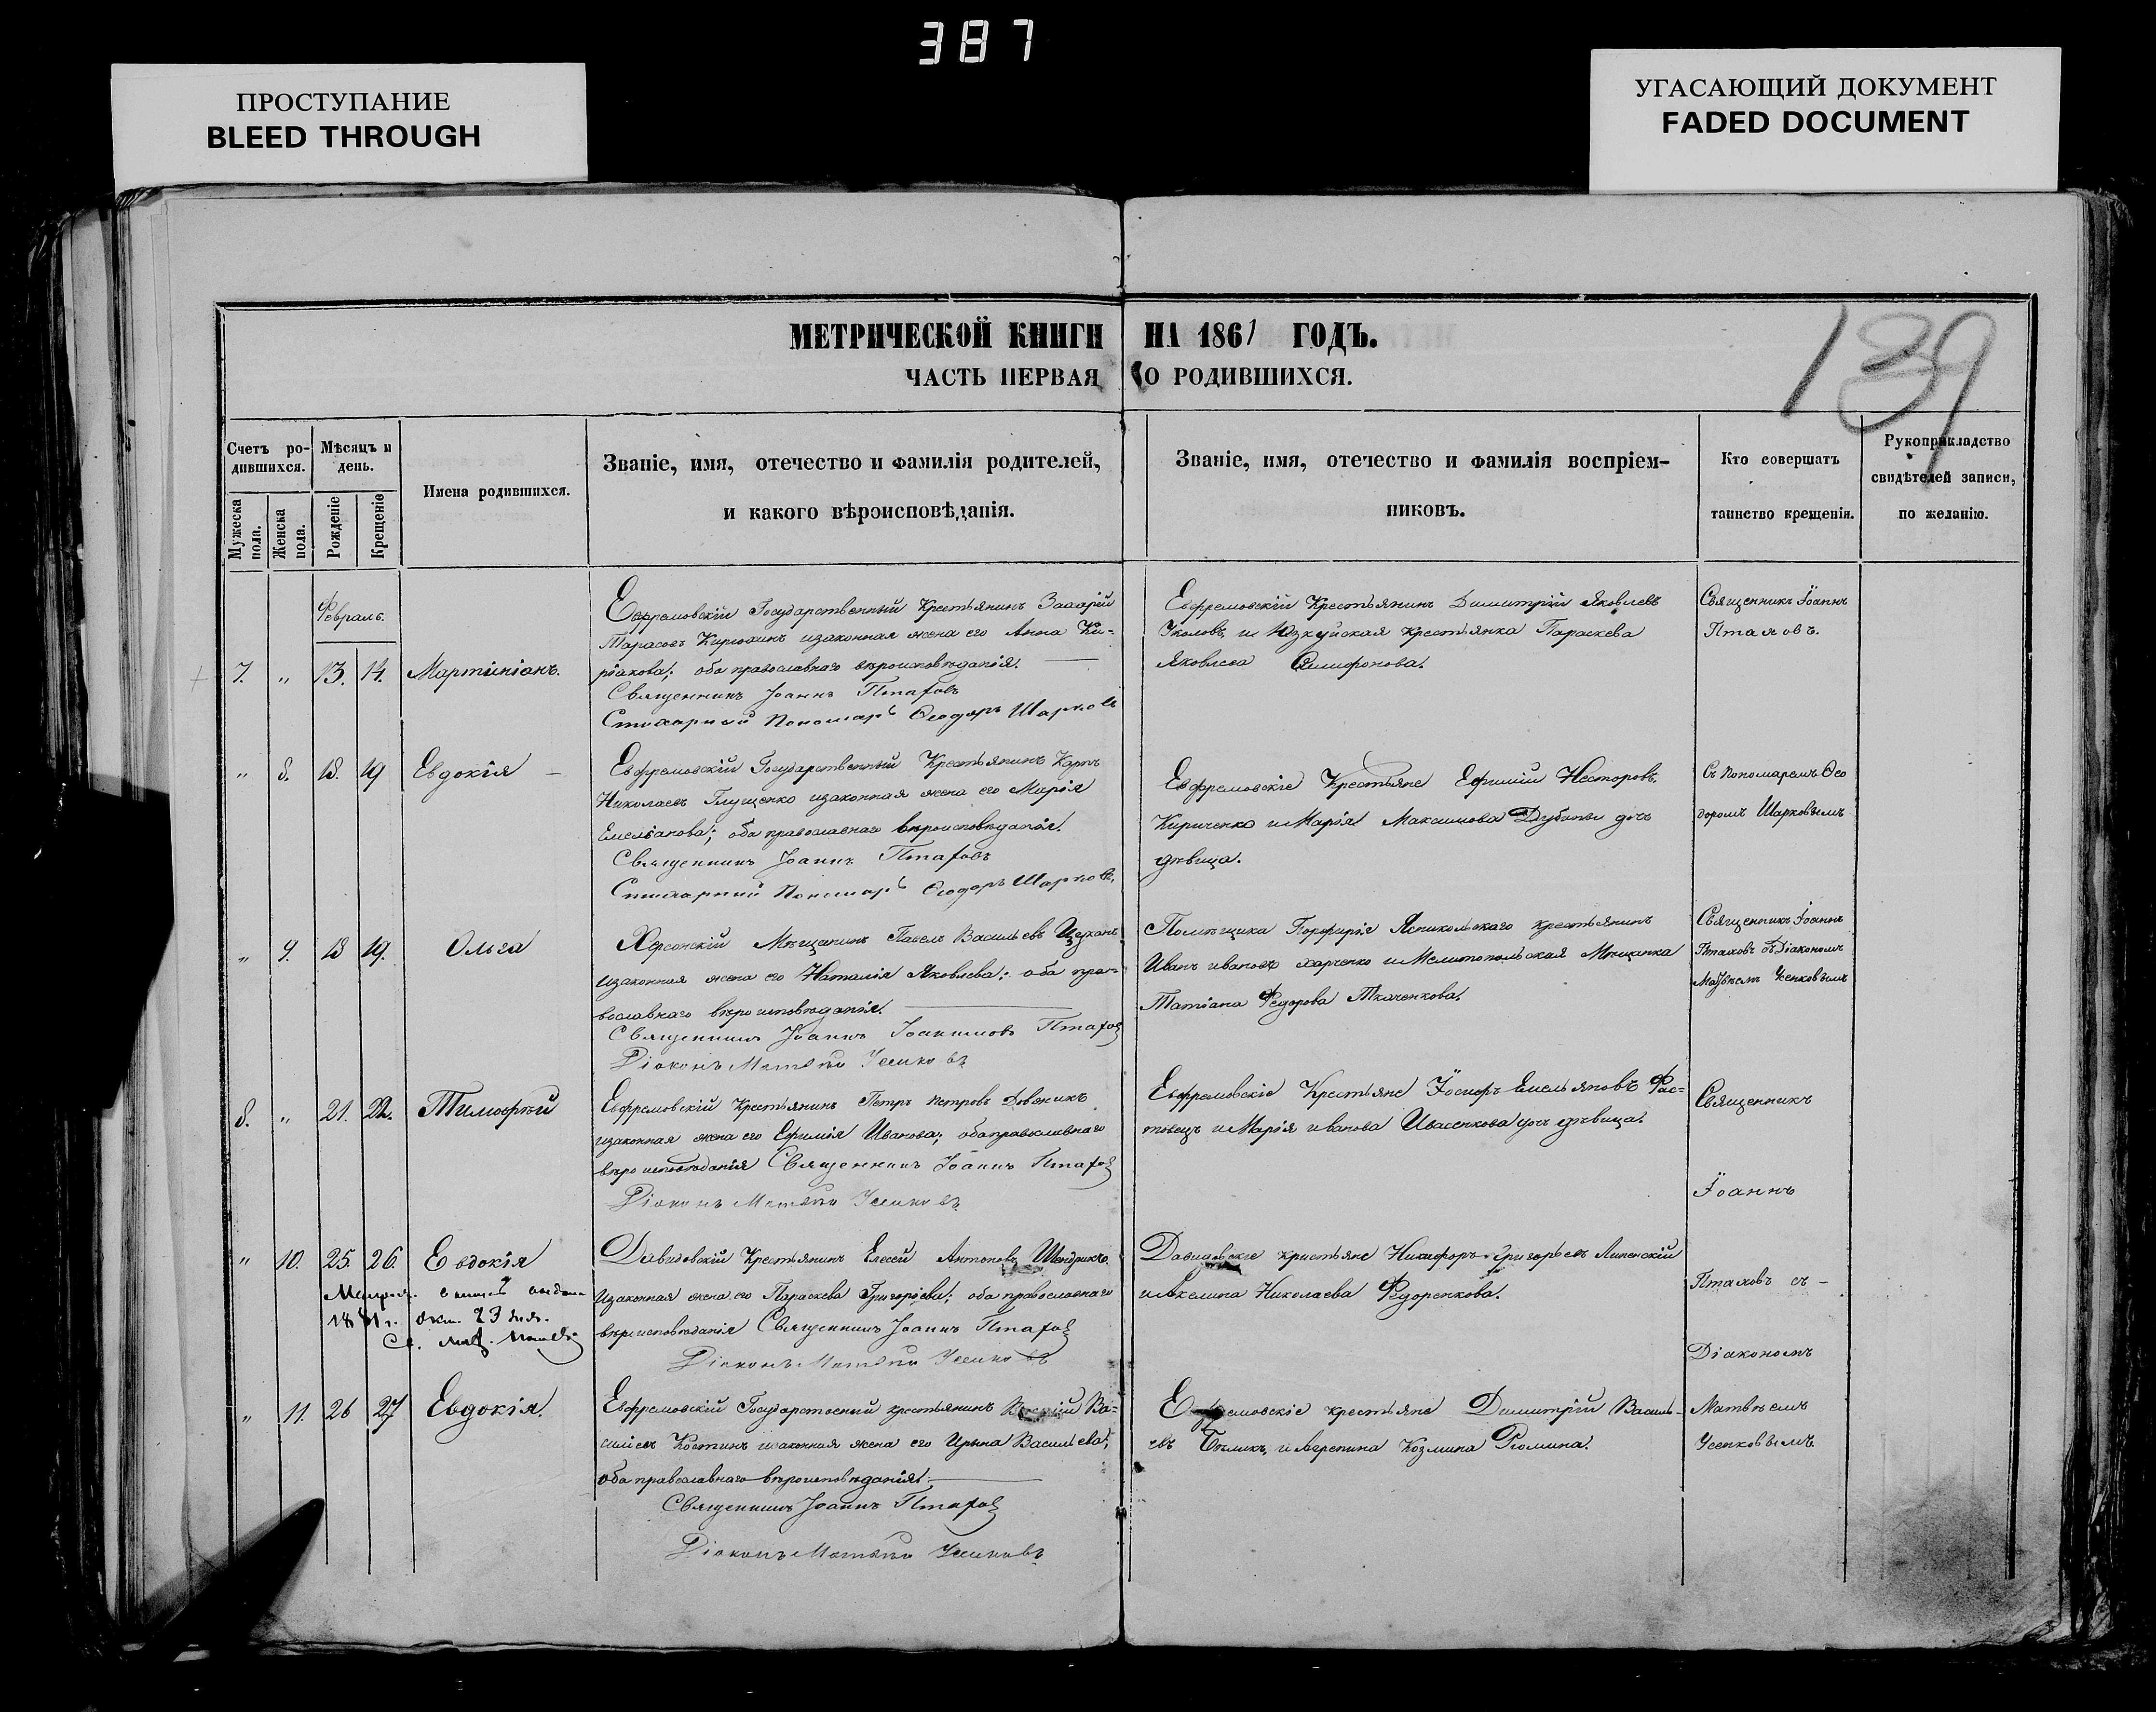 387
ПРОСТУПАНИЕ
BLEED THROUGH
УГАСАЮЩИЙ ДОКУМЕНТ
FADED DOCUMENT
139
МЕТРИЧЕСКОЙ КНИГИ НА 1861 ГОДЪ.
ЧАСТЬ ПЕРВАЯ О РОДИВШИХСЯ.
Счетъ ро-
дившихся.
Мужеска пола.
Женска пола.
Мѣсяцъ и
день.
Рожденіе
Крещеніе
Имена родившихся.
Званіе, имя, отечество и фамилія родителей,
и какого вѣроисповѣданія.
Званіе, имя, отечество и фамилія воспріем-
никовъ.
Кто совершатъ
таинство крещенія.
Рукоприкладство
свидѣтелей записи,
по желанію.
Февраль.
7. " 13. 14. Мартиніанъ.
Евфремовскій Государственный Крестьянинъ Захарій
Тарасовъ Кирюхинъ изаконная жена его Анна Ки-
ріакова; оба православнаго вѣроисповѣданія.
Священникъ Іоаннъ Птаховъ
Стихарный Пономарь Ѳеодоръ Шарковъ
Евфремовскій Крестьянинъ Димитрій Яковлевъ
и Юзкуйская крестьянка Параскева
Яковлева
Священникъ Іоаннъ
Птаховъ.
" 8. 18. 19 Евдокія
Евфремовскій Государственный Крестьянинъ Карпъ
Николаевъ Глущенко изаконная жена его Марія
Емельянова; оба православнаго вѣроисповѣданія.
Священникъ Іоаннъ Птаховъ
Стихарный Пономарь Ѳеодоръ Шарковъ.
Евфремовскіе Крестьяне Ефимій Несторовъ
Кириченко и Марія Максимова Дубины дочь
дѣвица.
Съ Пономаремъ Ѳео
доромъ Шарковымъ
" 9. 18 19. Ольга
Херсонскій Мѣщанинъ Павелъ Васильевъ
изаконная жена его Наталія Яковлева; оба пра-
вославнаго вѣроисповѣданія.
Священникъ Іоаннъ Іоакимовъ Птаховъ
Діаконъ Матвѣй Усенковъ
Помѣщика Порфирія крестьянинъ
Иванъ Ивановъ Харченко и Мелитопольская Мѣщанка
Татіана Федорова Ткаченкова.
Священникъ Іоаннъ
Птаховъ съ Діакономъ
Матвѣемъ Усенковымъ
8. " 21. 22. Тимофѣй
Евфремовскій Крестьянинъ Петръ Петровъ Довженикъ
изаконная жена его Ефимія Иванова; оба православнаго
вѣроисповѣданія Священникъ Іоаннъ Птаховъ
Діаконъ Матвѣй Усенковъ
Евфремовскіе Крестьяне Іосифъ Емельяновъ Фас-
товецъ и Марія Иванова Ивасенкова дочь дѣвица.
Священникъ
Іоаннъ
" 10. 25. 26. Евдокія
1881 г. окт. 23 дня.
Давидовскій Крестьянинъ Елесей Антоновъ Шендрикъ
изаконная жена его Параскева Григорьева; оба православнаго
вѣроисповѣданія Священникъ Іоаннъ Птаховъ
Діаконъ Матвѣй Усенковъ
Давидовскіе кристьяне Никифоръ Григорьевъ Липенскій
Николаева Федоренкова.
Птаховъ съ
Діакономъ
" 11. 26 27 Евдокія.
Евфремовскій Государственый крестьянинъ Ва-
сильевъ Костинъ изаконная жена его Ирина Васильева;
оба православнаго вѣроисповѣданія.
Священникъ Іоаннъ Птаховъ
Діаконъ Матвѣй Усенковъ
Ефремовскіе крестьяне Димитрій Василь-
евъ Бѣликъ, и Агрепина Козмина Рюмина.
Матвѣемъ
Усенковымъ